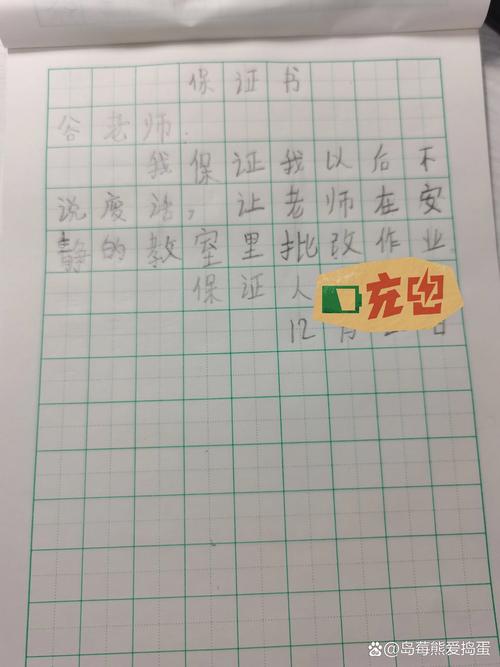 保证书
谷老师:
我保证我以后不
说废话,让老师在安
静的教室里批改作业
保证人
充电
12月 日
@岛莓熊爱捣蛋